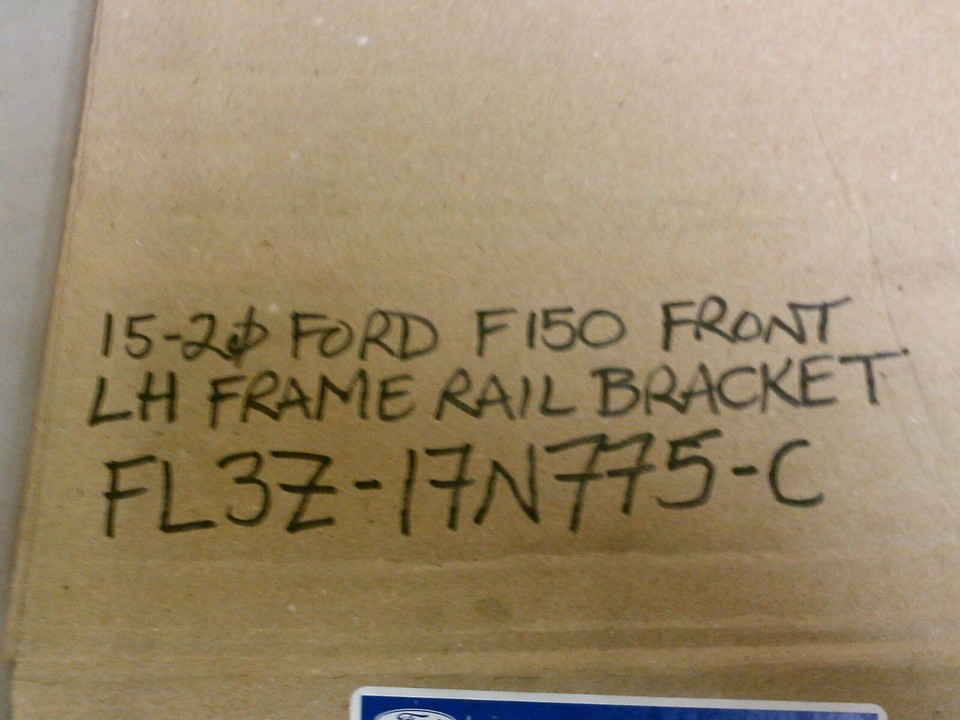 15-20 FORD F150 FRONT
LH FRAME RAIL BRACKET
FL3Z-17N775-C